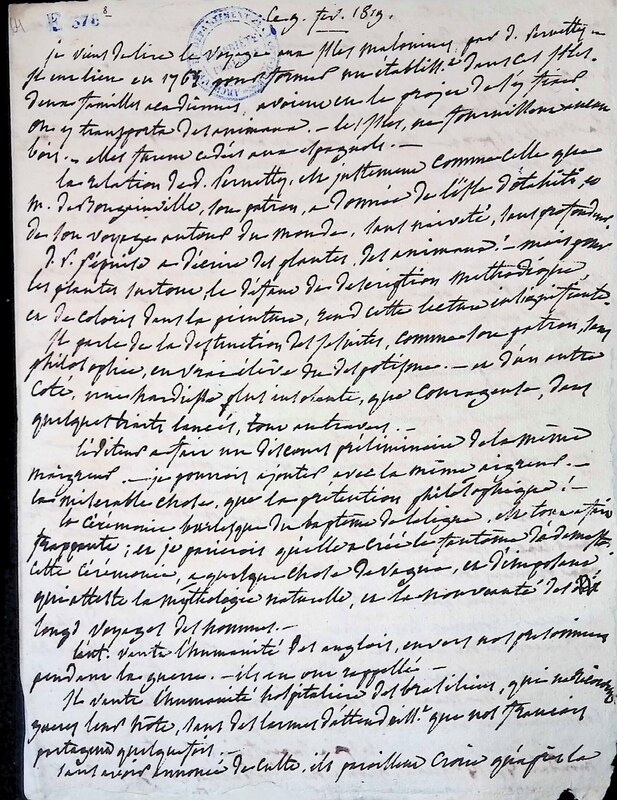 376 8
Le 9. fev. 1819.
je viens de lire le voyage aux isles malouines, par d. Pernetty –
il eut lieu en 1763, pour former un établisst dans ces isles.
deux familles acadiennes, avoient eu le projet de s'y fixer
on y transporta des animaux. – les isles, ne fournissent aucun
bois. – elles furent cédées aux espagnols. –
la relation de d. Pernetty, est justement comme celle que
M. de Bougainville, son patron, a donnée de l'isle d'otahiti, et
de son voyage autour du monde, sans naiveté, sans profondeur
d. P. s'épuise a décrire des plantes, des animaux! – mais pour
les plantes surtout, le défaut de description méthodique,
et de coloris dans la peinture, rend cette lecture insignifiante.
Il parle de la destruction des jésuites, comme son patron, sans
philosophie, en vrai élève du despotisme. – et d'un autre
coté, une hardiesse plus insolente, que courageuse, dans
quelques traits lancés, tout au travers. –
L'éditeur a fait un discours préliminaire de la même
maigreur – je pourrois ajouter avec la même aigreur. –
la miserable chose, que la prétention philosophique! –
la cérémonie burlesque du baptême de la ligne, est tout a fait
frappante; et je parierois qu'elle a créé le fantôme d'adamastor
cette cérémonie, a quelque chose de vague, et d'imposant
qui atteste la mythologie naturelle, et la nouveauté des
longs voyages des hommes. –
vante l'humanité des anglois, envers nos prisonniers
pendant la guerre. – ils en ont rappellé –
Il vante l'humanité hospitaliere des brasiliens, qui
gueres leur hôte, sans des larmes d'attendrisst que nos francois
partagent quelquefois. –
sans avoir annoncé de culte, ils paroissent croire qu'après la